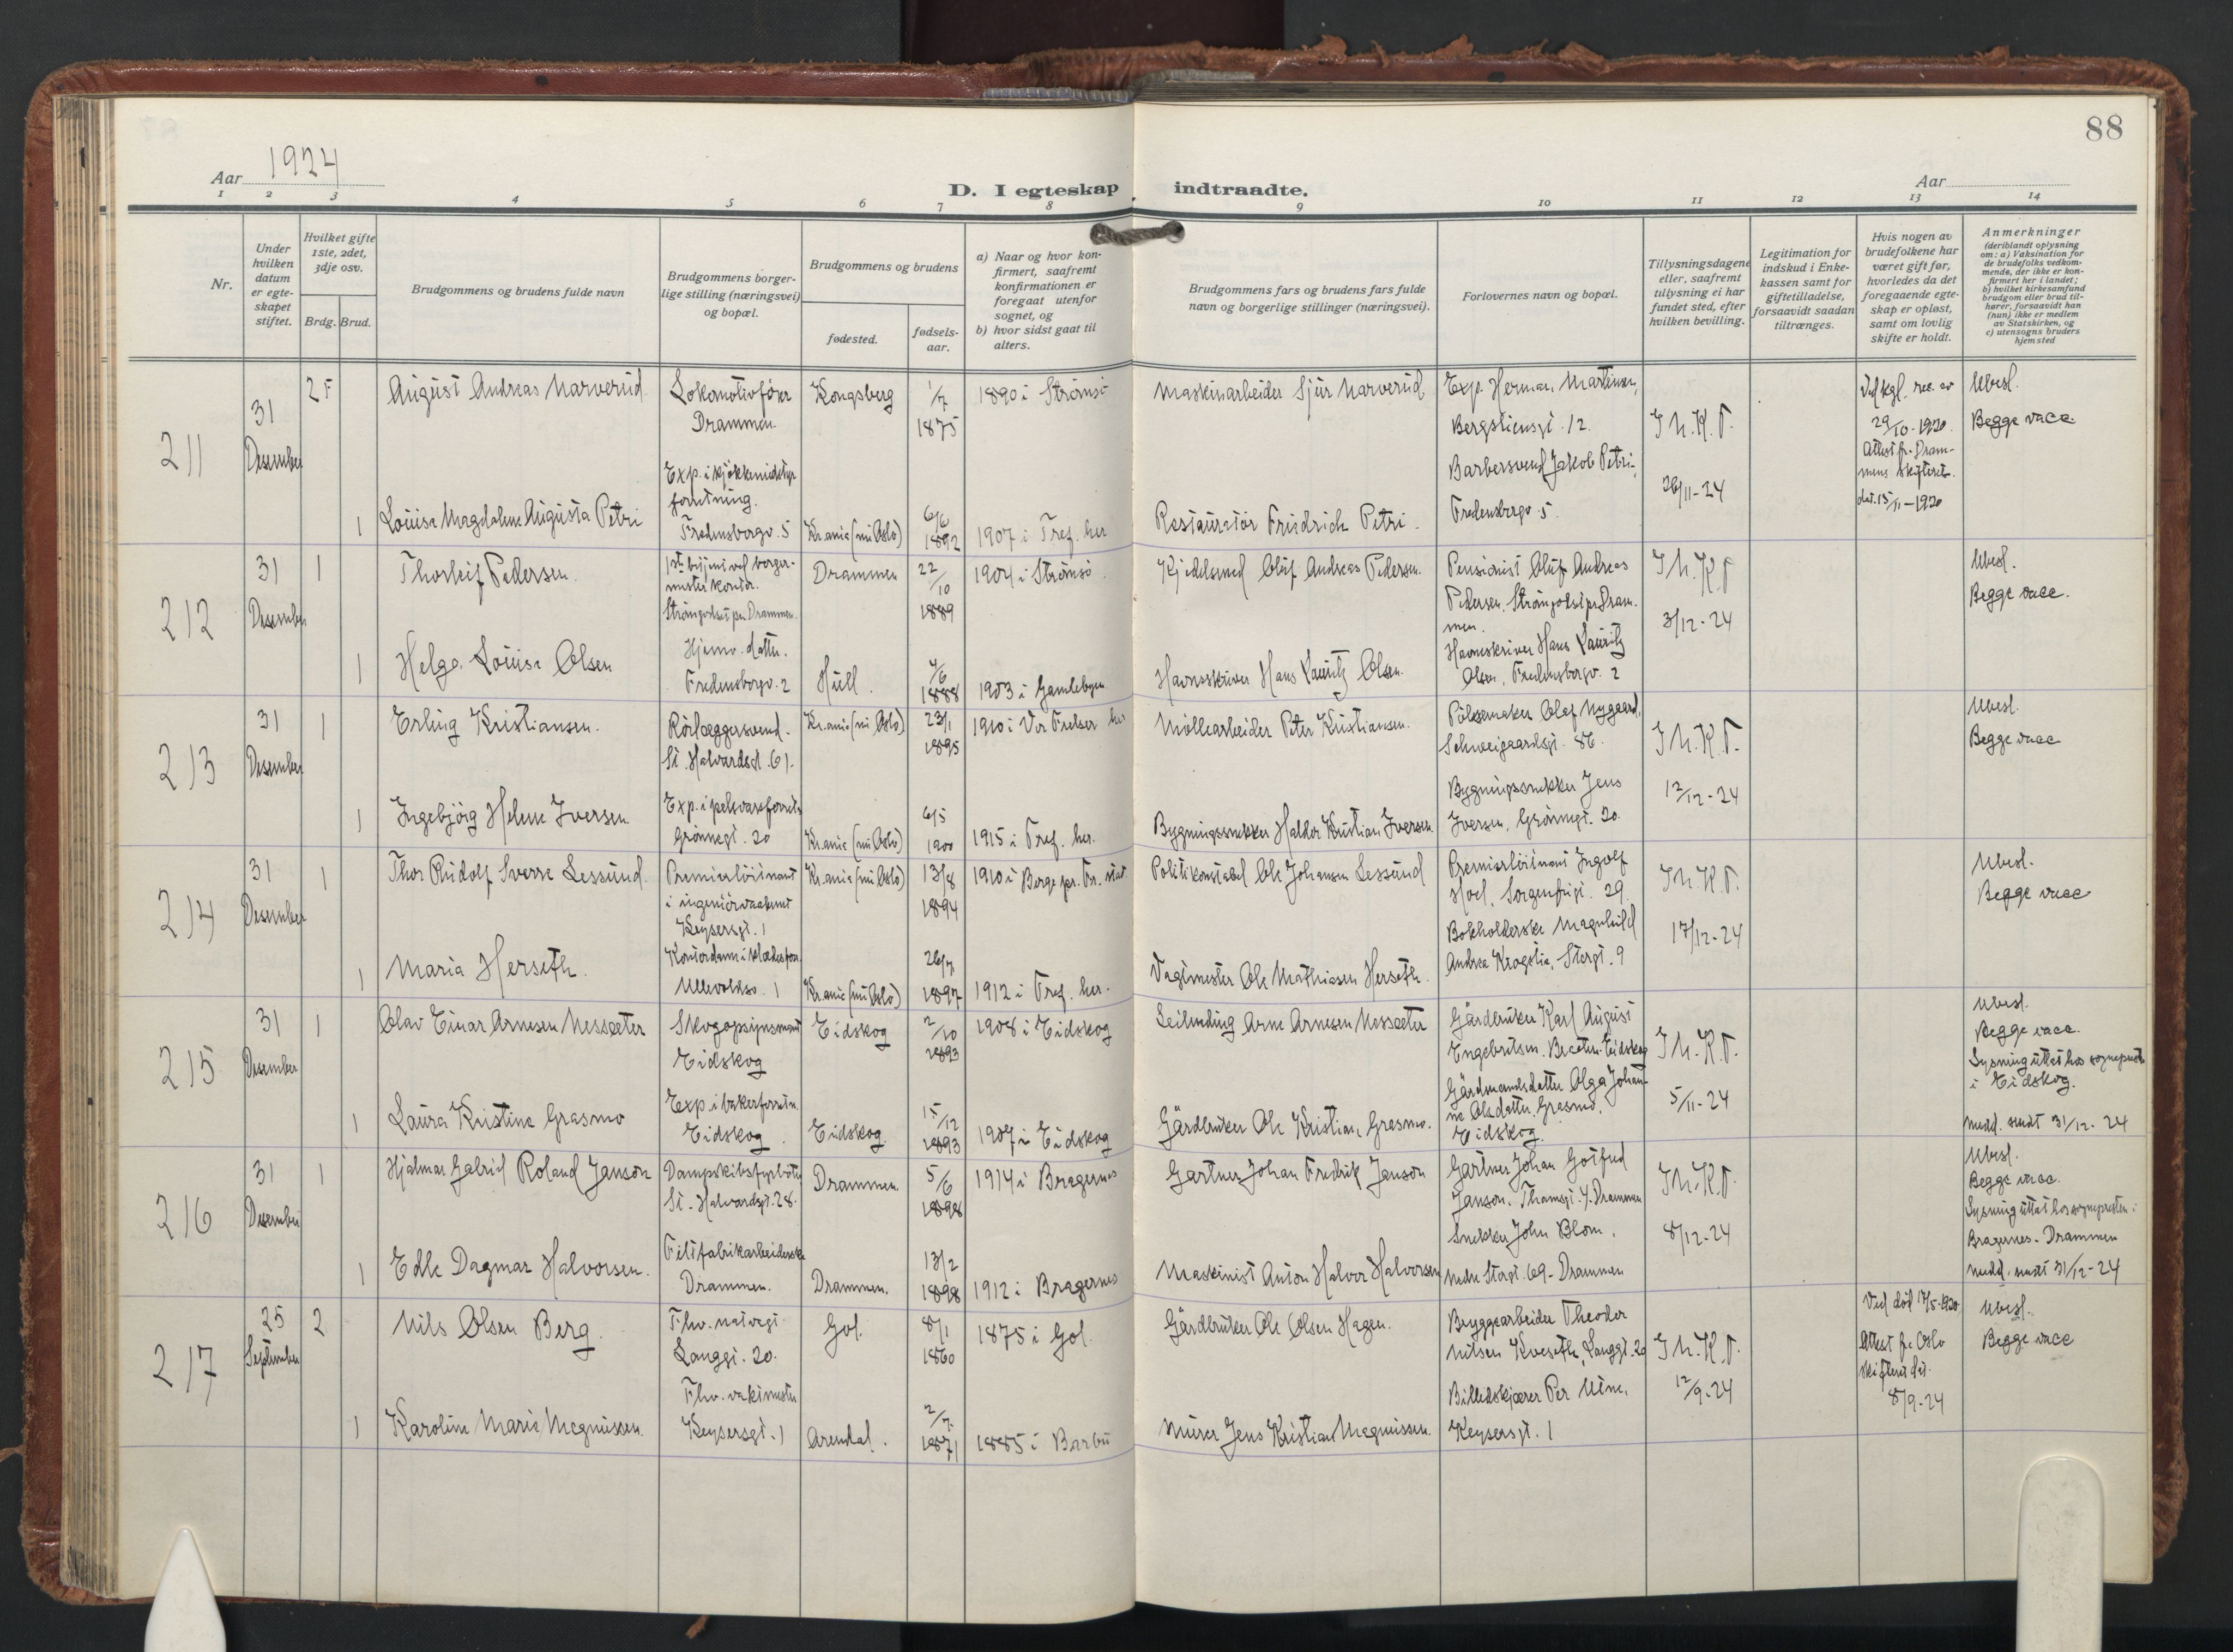 88
Aar 1924
D. I egteskap indtraadte.
Aar
1 2 3 4 5 6 7 8 9 10 11 12 13 14
Nr.
Under hvilken datum er egteskapet stiftet.
Hvilket gifte 1ste, 2det, 3dje osv.
Brdg. Brud.
Brudgommens og brudens fulde navn
Brudgommens borgerlige stilling (næringsvei) og bopæl.
Brudgommens og brudens
fødested.
fødselsaar.
a) Naar og hvor konfirmert, saafremt konfirmationen er foregaat utenfor sognet, og
b) hvor sidst gaat til alters.
Brudgommens fars og brudens fars fulde navn og borgerlige stillinger (næringsvei).
Forlovernes navn og bopæl.
Tillysningsdagene eller, saafremt tillysning ei har fundet sted, efter hvilken bevilling.
Legitimation for indskud i Enkekassen samt for giftetilladelse, forsaavidt saadan tiltrænges.
Hvis nogen av brudefolkene har været gift før, hvorledes da det foregaaende egteskap er opløst, samt om lovlig skifte er holdt.
Anmerkninger
(deriblandt oplysning om: a) Vaksination for de brudefolks vedkommende, der ikke er konfirmert her i landet;
b) hvilket kirkesamfund brudgom eller brud tilhører, forsaavidt han (hun) ikke er medlem av Statskirken, og
c) utensogns bruders hjemsted
211
31 Desember
2 F
August Andreas Narverud
Lokomotivfører
Drammen
Kongsberg
1/7 1875
1890 i Strømsø
Maskinarbeider Sjur Narverud
Exp. Herman Martinsen,
Bergsliensgt. 12.
26/11-24
29/10-1920.
Attest fr. Drammens skifteret
dat. 15/11-1920
Ubesl.
Begge vacc
1
Louisa Magdalene Augusta Petri
Fredensborgv. 5
Kr.ania (nu Oslo)
6/6 1892
1907 i Tref. her
Restauratør Friedrich Petri
Barbersvend Jakob Petri,
Fredensborgv. 5.
212
31 Desember
1
Thorleif Pedersen.
Drammen
22/10 1889
1904 i Strømsø.
Kjedelsmed Oluf Andreas Pedersen.
Pensionist Oluf Andreas
Pedersen.
3/12-24
Ubesl.
Begge vacc.
1
Helga Louisa Olsen
Hjemv. datter.
Fredensborgv. 2
Hull.
4/6 1888
1903 i Gamlebyen
Havneskriver Hans Lauritz Olsen.
Havneskriver Hans Lauritz
Olsen, Fredensborgv. 2
213
31 Desember
1
Erling Kristiansen.
Rørlæggersvend.
St. Halvardsgt. 61.
Kr.ania (nu Oslo)
23/1 1895
1910 i Vor Frelser her
Møllearbeider Peter Kristiansen.
Pølsemaker Olaf Nygaard,
Schweigaardsgt. 86.
12/12-24
Ubesl.
Begge vacc
1
Ingebjørg Helene Iversen
Grønnegt. 20
Kr.ania (nu Oslo)
6/5 1900
1915 i Tref. her.
Bygningssnekker Halvor Kristian Iversen.
Bygningssnekker Jens
Iversen, Grønnegt. 20.
214
31 Desember
1
Thor Rudolf Sverre Lessund.
Premierløitnant
i ingeniørvaabenet
Keysersgt. 1
Kr.ania (nu Oslo)
13/8 1894
Politikonstabel Ole Johansen Lessund
Premierløitnant Ingolf
Hoel, Sorgenfrigt. 29.
17/12-24
Ubesl.
Begge vacc
1
Maria Herseth.
Ullevoldsv. 1
Kr.ania (nu Oslo)
26/7 1897
1912 i Tref. her.
Vagtmester Ole Mathiasen Herseth.
Bokholderske Magnhild
Andrea Krogstie, Storgt. 9
215
31 Desember
1
Olav Einar Arnesen Nessæter
Skogopsynsmand
Eidskog
Eidskog
2/10 1893
1908 i Eidskog
Leilending Arne Arnesen Nessæter
Gårdbruker Karl August
Engebretsen.
5/11-24
Ubesl.
Begge vacc.
Lysning uttat hos sogneprest
i Eidskog.
Medd. sendt 31/12-24
1
Laura Kristine Grasmo
Exp. i bakerforretn.
Eidskog
Eidskog
15/12 1893
1907 i Eidskog
Gårdbruker Ole Kristian Grasmo.
Gårdmandsdatter Olga Johanne Olsdatter Grasmo,
Eidskog.
216
31 Desember
1
Hjalmar Gabriel Roland Janson
Dampskibsfyrbøter
St. Halvardsgt. 28.
Drammen
5/6 1898
1914 i Bragernes
Gartner Johan Fredrik Janson
Gartner Johan Gotfred
Janson. Thamsgt. 4. Drammen
8/12-24
Ubesl.
Begge vacc.
Lysning uttat hos sognepresten i
Bragernes - Drammen
Medd. sendt 31/12-24
1
Edle Dagmar Halvorsen.
Filtfabrikarbeiderske
Drammen.
Drammen.
13/2 1898
1912 i Bragernes
Maskinist Anton Halvor Halvorsen
Snekker John Blom,
Nedre Storgt. 69 - Drammen
217
25 September
2
Nils Olsen Berg.
Langgt. 20.
Gol.
8/1 1860
1875 i Gol.
Gårdbruker Ole Olsen Hagen.
Bryggearbeider Theodor
Nilsen Kvaseth, Langgt. 20
12/9-24
Ved død 17/5-1920
Attest fr. Oslo
skifteret dat.
8/9-24
Ubesl.
Begge vacc
1
Karoline Marie Magnussen.
Fhv. vaktmester
Keysersgt. 1
Arendal.
2/7 1871
1885 i Barbu
Murer Jens Kristian Magnussen.
Billedskjærer Per
Keysersgt. 1